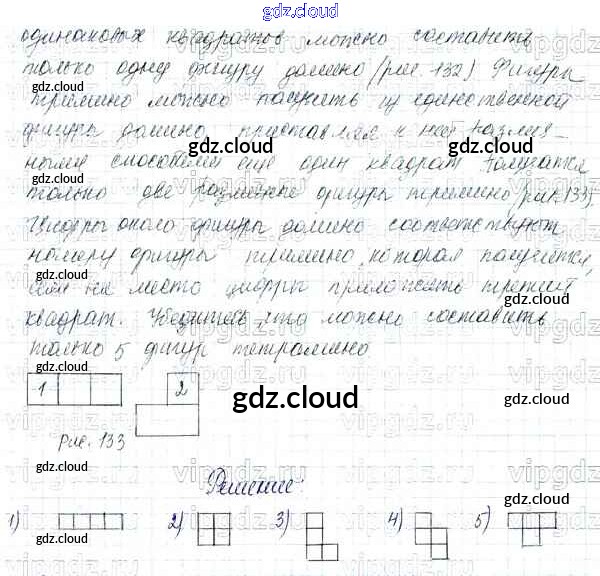 gdz.cloud
одинаковых квадратов можно составить
только одну фигуру домино (рис. 132) Фигуры
тримино можно получить из единственной
фигуры домино, приставляя к ней различ-
ными способами еще один квадрат получатся
только две различные фигуры тримино (рис. 133).
Цифры около фигуры домино соответствуют
номеру фигуры тримино, которая получится,
если на место цифры приложить третий
квадрат. Убедитесь, что можно составить
только 5 фигур тетрамино
1 2
gdz.cloud
рис. 133
Решение:
1) 2) 3) 4) 5)